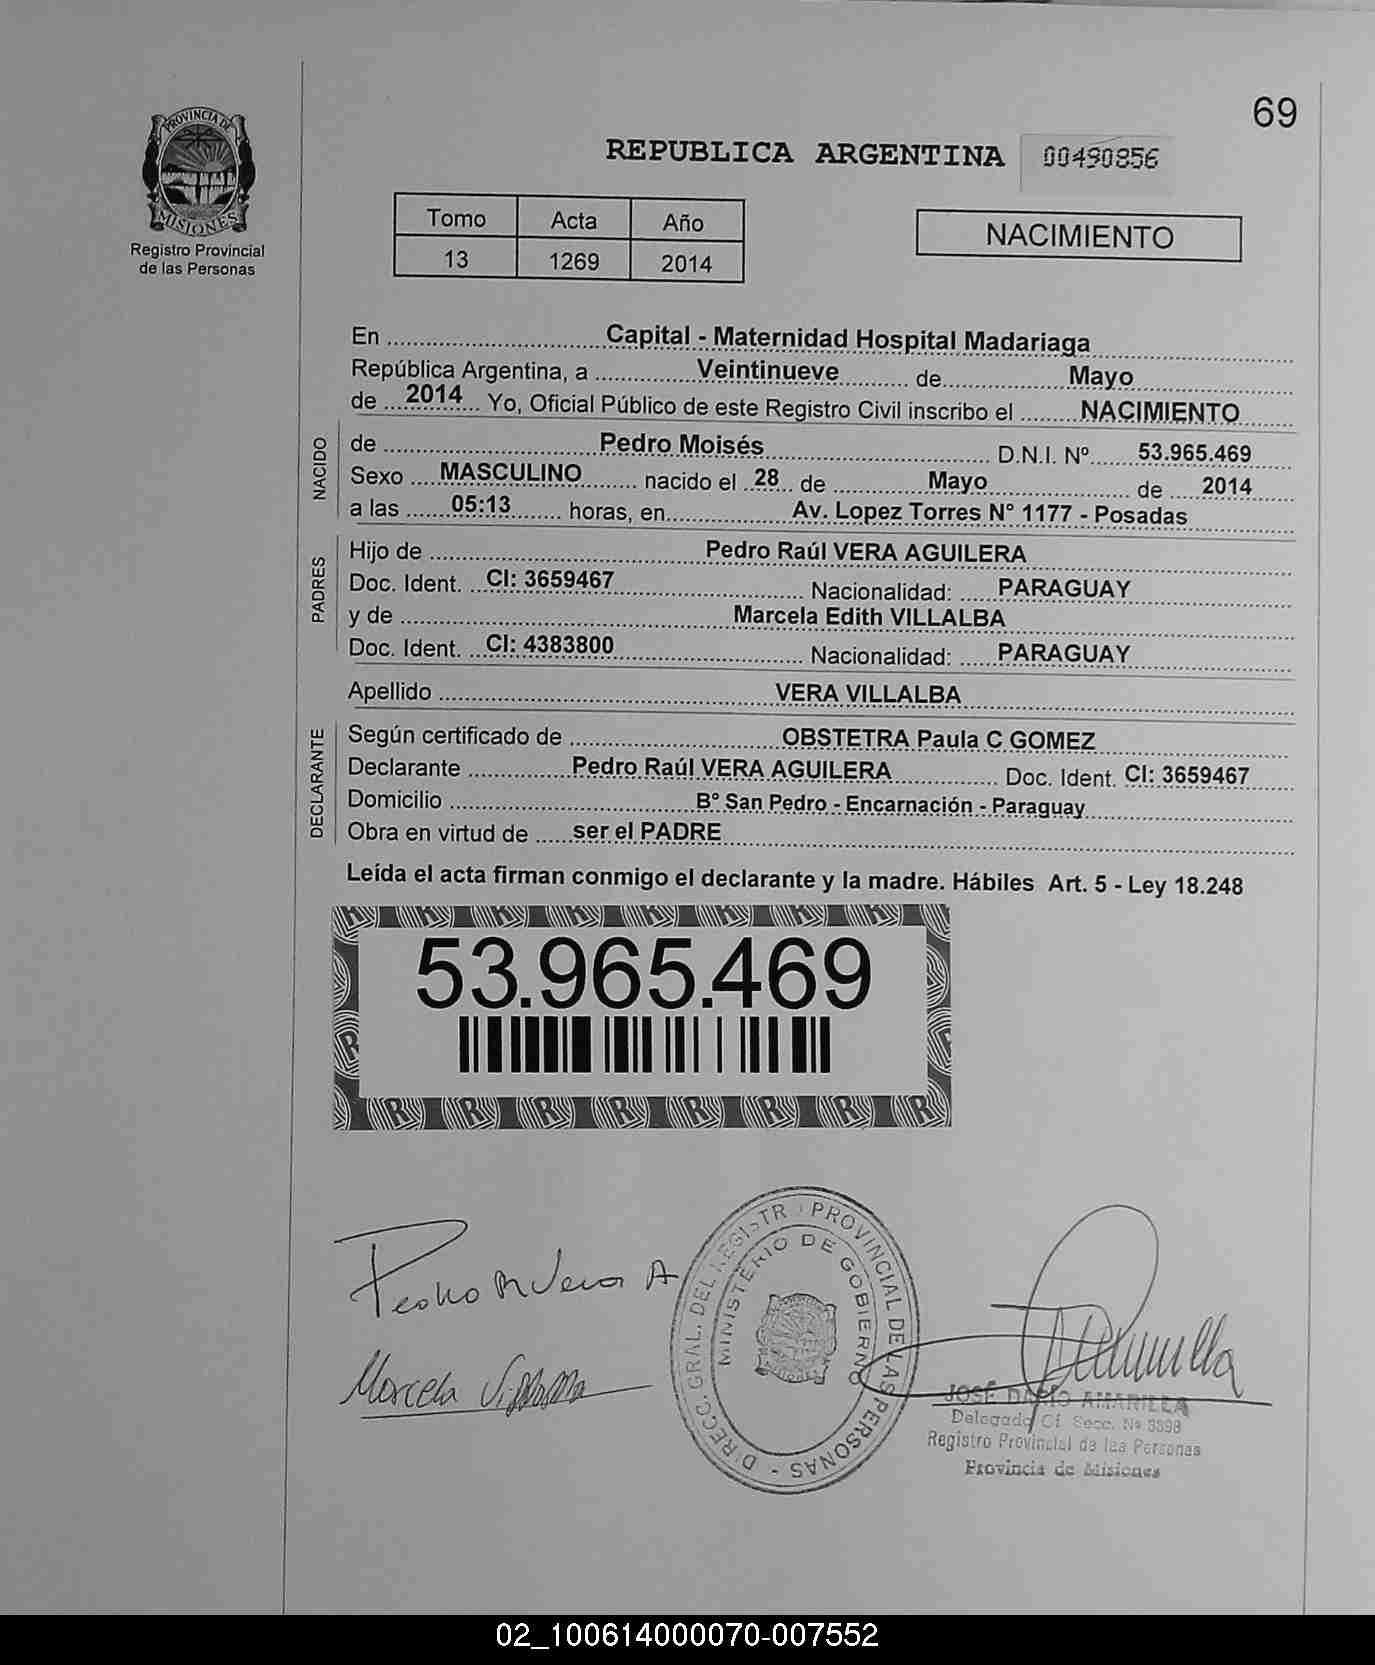 69
PROVINCIA DE
MISIONES
Registro Provincial
de las Personas
REPUBLICA ARGENTINA 00490856
Tomo Acta Año
13 1269 2014
NACIMIENTO
En Capital - Maternidad Hospital Madariaga
República Argentina, a Veintinueve de Mayo
de 2014 Yo, Oficial Público de este Registro Civil inscribo el NACIMIENTO
NACIDO
de Pedro Moisés D.N.I. Nº 53.965.469
Sexo MASCULINO nacido el 28 de Mayo de 2014
a las 05:13 horas, en Av. Lopez Torres N° 1177 - Posadas
PADRES
Hijo de Pedro Raúl VERA AGUILERA
Doc. Ident. CI: 3659467 Nacionalidad: PARAGUAY
y de Marcela Edith VILLALBA
Doc. Ident. CI: 4383800 Nacionalidad: PARAGUAY
Apellido VERA VILLALBA
DECLARANTE
Según certificado de OBSTETRA Paula C GOMEZ
Declarante Pedro Raúl VERA AGUILERA Doc. Ident. CI: 3659467
Domicilio B° San Pedro - Encarnación - Paraguay
Obra en virtud de ser el PADRE
Leída el acta firman conmigo el declarante y la madre. Hábiles Art. 5 - Ley 18.248
53.965.469
Pedro R Vera A
Marcela Villalba
DIRECC. GRAL. DEL REGISTRO PROVINCIAL DE LAS PERSONAS -
MINISTERIO DE GOBIERNO
JOSÉ DARIO AMARILLA
Delegado Cf. Secc. Nº 3398
Registro Provincial de las Personas
Provincia de Misiones
02_100614000070-007552